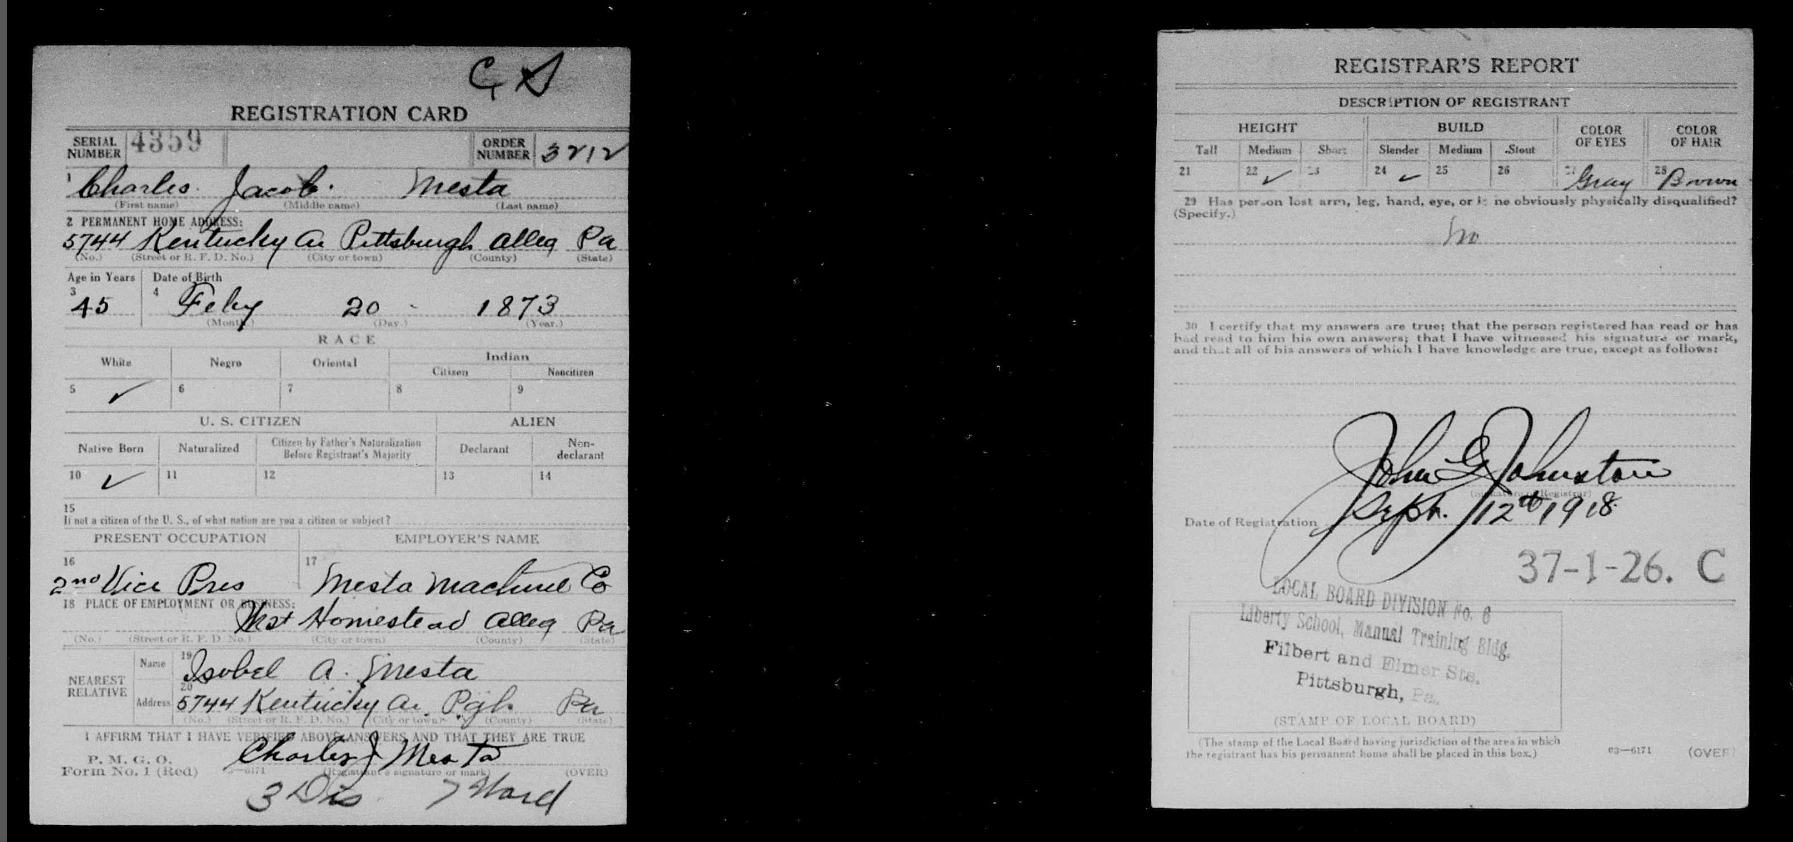 C S
REGISTRATION CARD
SERIAL NUMBER 4359 ORDER NUMBER 3212
1 Charles Jacob Mesta
(First name) (Middle name) (Last name)
2 PERMANENT HOME ADDRESS:
5744 Kentucky Av Pittsburgh Alleg Pa
(No.) (Street or R. F. D. No.) (City or town) (County) (State)
Age in Years Date of Birth
3 45 4 Feby 20 - 1873
(Month.) (Day.) (Year.)
RACE
White Negro Oriental Indian
Citizen Noncitizen
5 ✓ 6 7 8 9
U. S. CITIZEN ALIEN
Native Born Naturalized Citizen by Father's Naturalization Before Registrant's Majority Declarant Non-declarant
10 ✓ 11 12 13 14
15
If not a citizen of the U. S., of what nation are you a citizen or subject?
PRESENT OCCUPATION EMPLOYER'S NAME
16 2nd Vice Pres 17 Mesta Machine Co
18 PLACE OF EMPLOYMENT OR BUSINESS:
West Homestead Alleg Pa
(No.) (Street or R. F. D. No.) (City or town) (County) (State)
NEAREST RELATIVE
Name 19 Isobel A. Mesta
Address 20 5744 Kentucky Av. Pgh. Pa
(No.) (Street or R. F. D. No.) (City or town) (County) (State)
I AFFIRM THAT I HAVE VERIFIED ABOVE ANSWERS AND THAT THEY ARE TRUE
P. M. G. O.
Form No. 1 (Red) 03—6171 Charles J Mesta
(Registrant's signature or mark) (OVER)
3 Dis 7 Ward
REGISTRAR'S REPORT
DESCRIPTION OF REGISTRANT
HEIGHT BUILD COLOR OF EYES COLOR OF HAIR
Tall Medium Short Slender Medium Stout
21 22 ✓ 23 24 ✓ 25 26 27 Gray 28 Brown
29 Has person lost arm, leg, hand, eye, or is he obviously physically disqualified?
(Specify.)
No
30 I certify that my answers are true; that the person registered has read or has
had read to him his own answers; that I have witnessed his signature or mark,
and that all of his answers of which I have knowledge are true, except as follows:
John G Johnston
(Signature of Registrar)
Date of Registration Sept. 12th 1918
37-1-26. C
LOCAL BOARD DIVISION No. 6
Liberty School, Manual Training Bldg.
Filbert and Elmer Sts.
Pittsburgh, Pa.
(STAMP OF LOCAL BOARD)
(The stamp of the Local Board having jurisdiction of the area in which
the registrant has his permanent home shall be placed in this box.)
03—6171 (OVER)